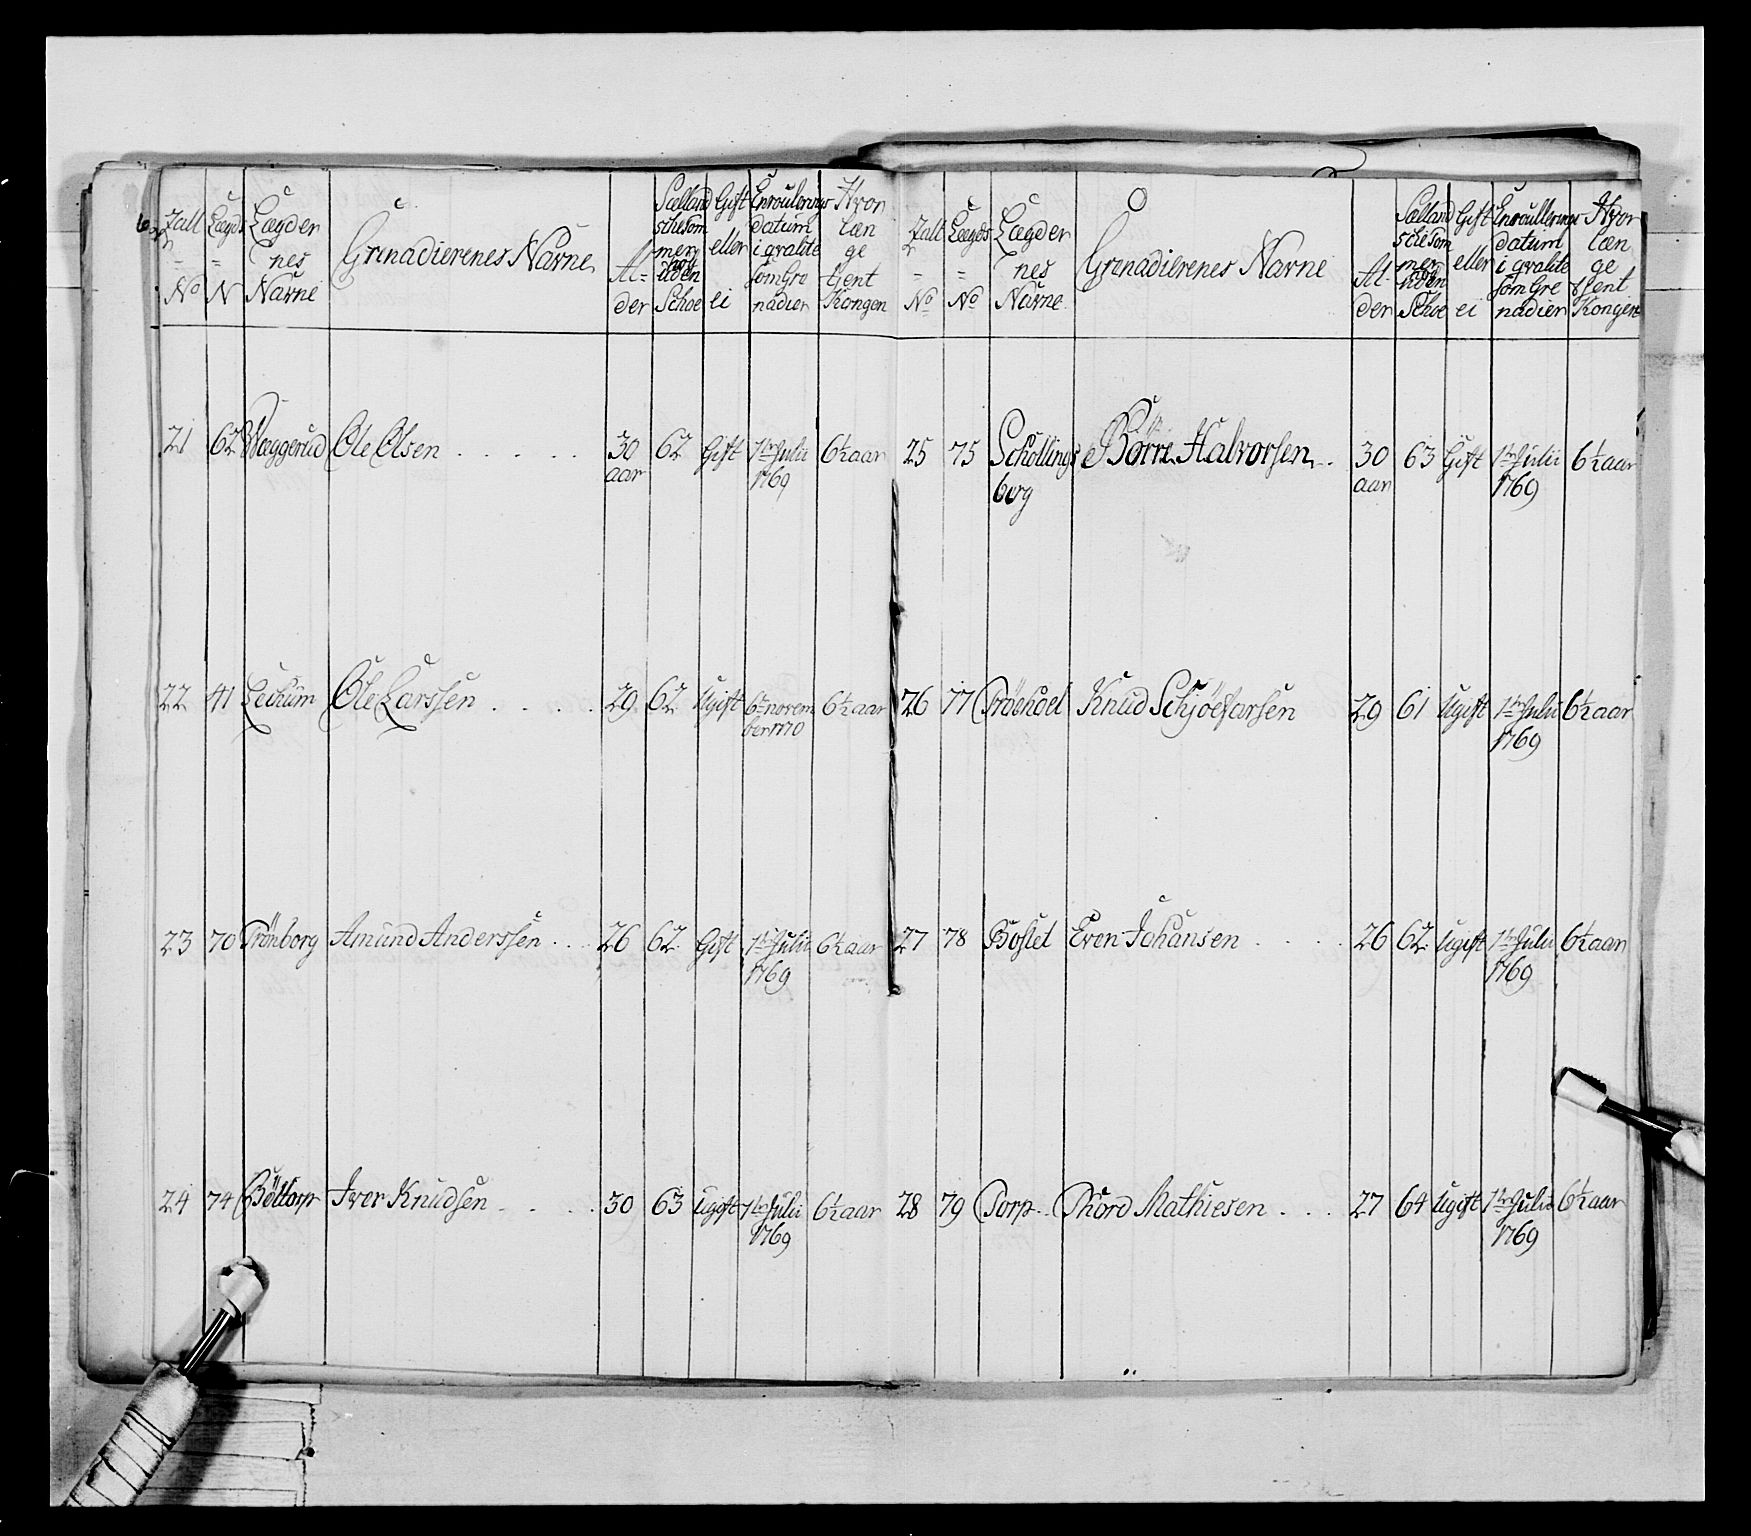 Jalt Lægds Lægder nes Navne Grenadierenes Navne Al= der Sælland sche som mer uden Schoe Gift eller ei Enroulerings datum i qvalite som Gre nadier Hvor læn ge tjent Kongen
No N
21 62 Wæggerud Ole Olsen . . . . . 30 aar 62 Gift 1te Julii 1769 6½ aar
22 41 Lechum Ole Larssen . . . . 29 62 Ugift 6te novem ber 1770 6½ aar
23 70 Trönborg Amund Anderssen . . . 26 62 Gift 1te Julii 1769 6½ aar
24 74 Böltorp Iver Knudsen . . . . 30 63 Ugift 1te Julii 1769 6½ aar
Jalt Lægds Lægder nes Navne Grenadierenes Navne Al- der Sælland sche som mer uden Schoe Gift eller ei Enroullerings datum i qvalite som Gre nadier Hvor læn ge tjent Kongen
No No
25 75 Schollings berg Börre Halvorsen . . 30 aar 63 Gift 1te Julii 1769 6½ aar
26 77 Knud Schjöefarsen 29 61 Ugift 1te Julii 1769 6½ aar
27 78 Bostet Even Johansen . . . . . 26 62 Ugift 1te Julii 1769 6½ aar
28 79 Torp . . Thord Mathiesen . . . 27 64 Ugift 1te Julii 1769 6½ aar